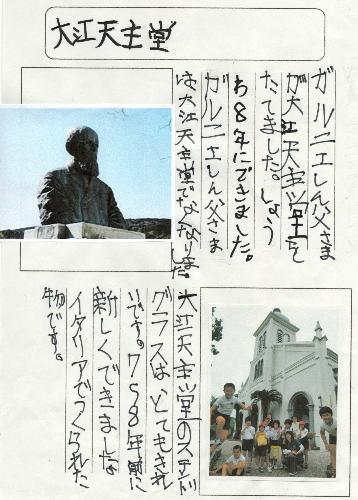 大江天主堂
ガルニエしん父さま
が大江天主堂を
たてました。しょう
わ8年にできました。
ガルニエしん父さま
は大江天主堂でなくなりました。
大江天主堂のステンド
グラスはとてもきれ
いです。7〜8年前に
新しくできました。
イタリアでつくられた
物です。